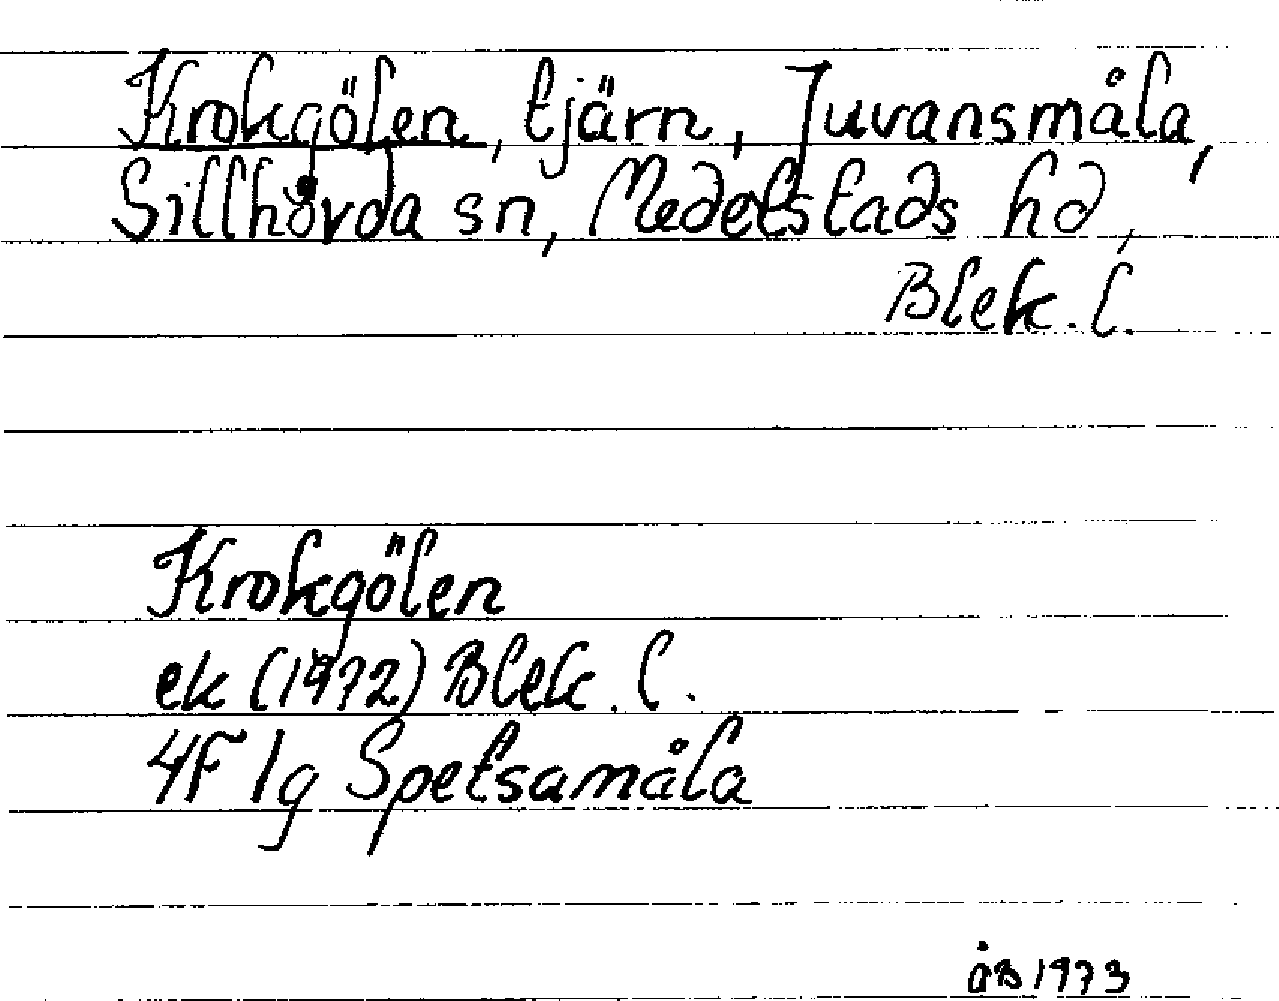 Krokgölen, tjärn, Juvansmåla,
Sillhövda sn, Medelstads hd,
Blek. l.
Krokgölen
ek (1972) Blek. l.
4F 1g Spetsamåla
åB 1973